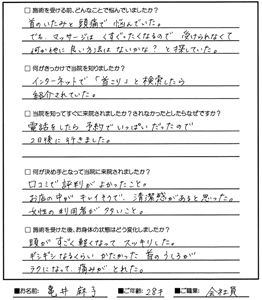 □施術を受ける前、どんなことで悩んでいましたか?
首のいたみと頭痛で悩んでいた。
でも、マッサージはくすぐったくなるので受けられなくて
何か他に良い方法はないかな?と探していた。
□何がきっかけで当院を知りましたか?
インターネットで「首こり」と検索したら
紹介されていた。
□当院を知ってすぐに来院されましたか?されなかったとしたらなぜですか?
電話をしたら予約でいっぱいだったので
2日後に行きました。
□何が決め手となって当院に来院されましたか?
口コミで評判がよかったこと。
お店の中がキレイそうで、清潔感があると思った。
女性の利用者が多いこと。
□施術を受けた後、お身体の状態はどう変化しましたか?
頭がすごく軽くなってスッキリした。
ギシギシなるくらいかたかった首のうしろが
ラクになって、痛みがとれた。
■お名前: 亀井 麻子 ■ご年齢: 28才 ■ご職業: 会社員